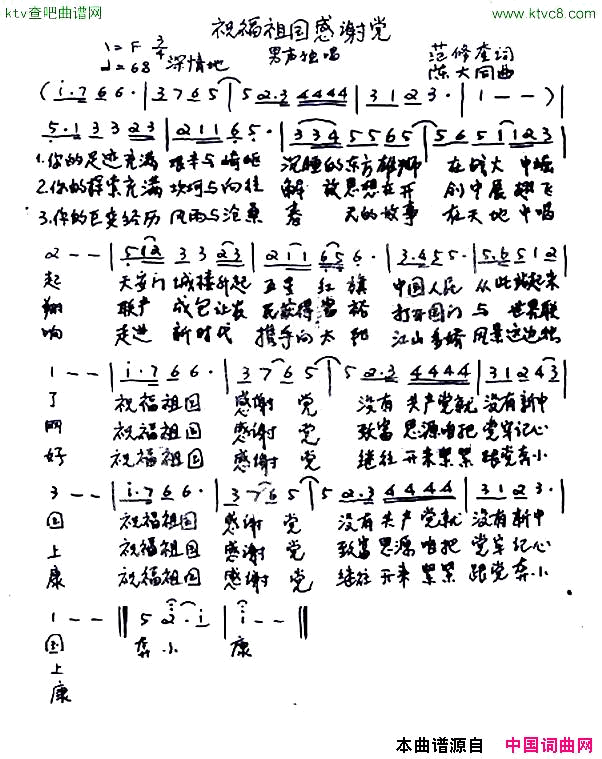 ktv查吧曲谱网
www.ktvc8.com
祝福祖国感谢党
1=F 3/4
♩=68 深情地
男声独唱
范修奎词
陈大同曲
(i·7 6 6·|3 7 6 5|5 2·3 4 4 4 4|3 1 2 3·|1 - -)|
5·1 3 3 2 3|2 1 1 6 5·|3 3 4 5 5 5|5 6 5 1 1 2 3|
1.你的足迹充满 艰辛与崎岖 沉睡的东方雄狮 在 大 中崛
2.你的探索充满 坎坷与向往 解 放思想在开 创中展翅飞
3.你的巨变经历 风雨与沧桑 春 天的故事 在天地 中唱
2 - -|5 1 2 3 3 2 3|2 1 1 6 5 6·|3·4 5 5·|5·6 5 1 2|
起 天安门 城楼升起 五星 红 旗 中国人民 从此站起来
翔 联产 成包让农 民获得富裕 打开国门 与 世界联
响 走进 新时代 携手向太阳 江山多娇 风景这边独
1 - -|i·7 6 6·|3 7 6 5|5 2·3 4 4 4 4|3 1 2 4 3|
了 祝福祖国 感谢 党 没有 共产党就 没有新中
网 祝福祖国 感谢 党 致富 思源咱把 党牢记心
好 祝福祖国 感谢 党 继往 开来紧紧 跟党奔小
3 - -|i·7 6 6·|3 7 6 5|5 2·3 4 4 4 4|3 1 2 3·|
国 祝福祖国 感谢 党 没有 共产党就 没有新中
上 祝福祖国 感谢 党 致富 思源咱把 党牢记心
康 祝福祖国 感谢 党 继往 开来紧紧 跟党奔小
1 - -‖5 2·i|i - -‖
国 奔 小 康
上
康
本曲谱源自 中国词曲网